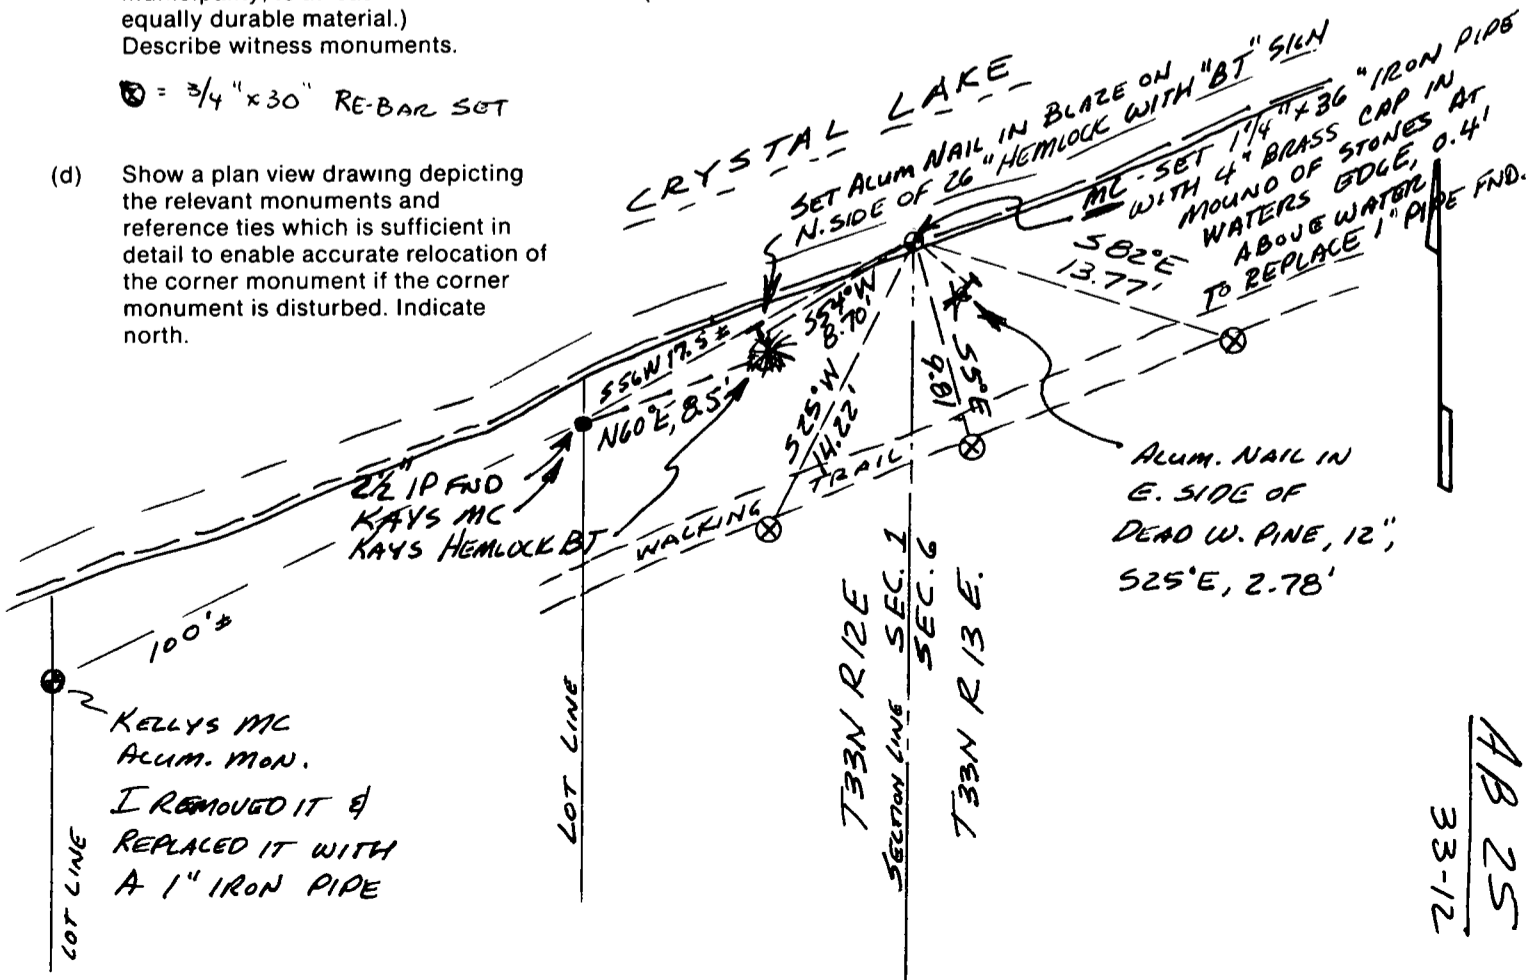 equally durable material.)
Describe witness monuments.
⊗ = 3/4" x 30" RE-BAR SET
(d) Show a plan view drawing depicting
the relevant monuments and
reference ties which is sufficient in
detail to enable accurate relocation of
the corner monument if the corner
monument is disturbed. Indicate
north.
CRYSTAL LAKE
SET ALUM NAIL IN BLAZE ON
N. SIDE OF 26" HEMLOCK WITH "BT" SIGN
MC - SET 1 1/4" x 36" IRON PIPE
WITH 4" BRASS CAP IN
MOUND OF STONES AT
WATERS EDGE, 0.4'
ABOVE WATER
TO REPLACE 1" PIPE FND.
S82°E
13.77'
S54°W
8.70'
S56W 17.5±
N60°E, 8.5'
S25°W
14.22'
S5°E
9.81
2 1/2" IP FND
KAYS MC
KAYS HEMLOCK BT
WALKING TRAIL
ALUM. NAIL IN
E. SIDE OF
DEAD W. PINE, 12",
S25°E, 2.78'
100'±
KELLYS MC
ALUM. MON.
I REMOVED IT &
REPLACED IT WITH
A 1" IRON PIPE
LOT LINE
LOT LINE
T33N R12E
SECTION LINE SEC. 1
SEC. 6
T33N R13E.
AB 25
33-12